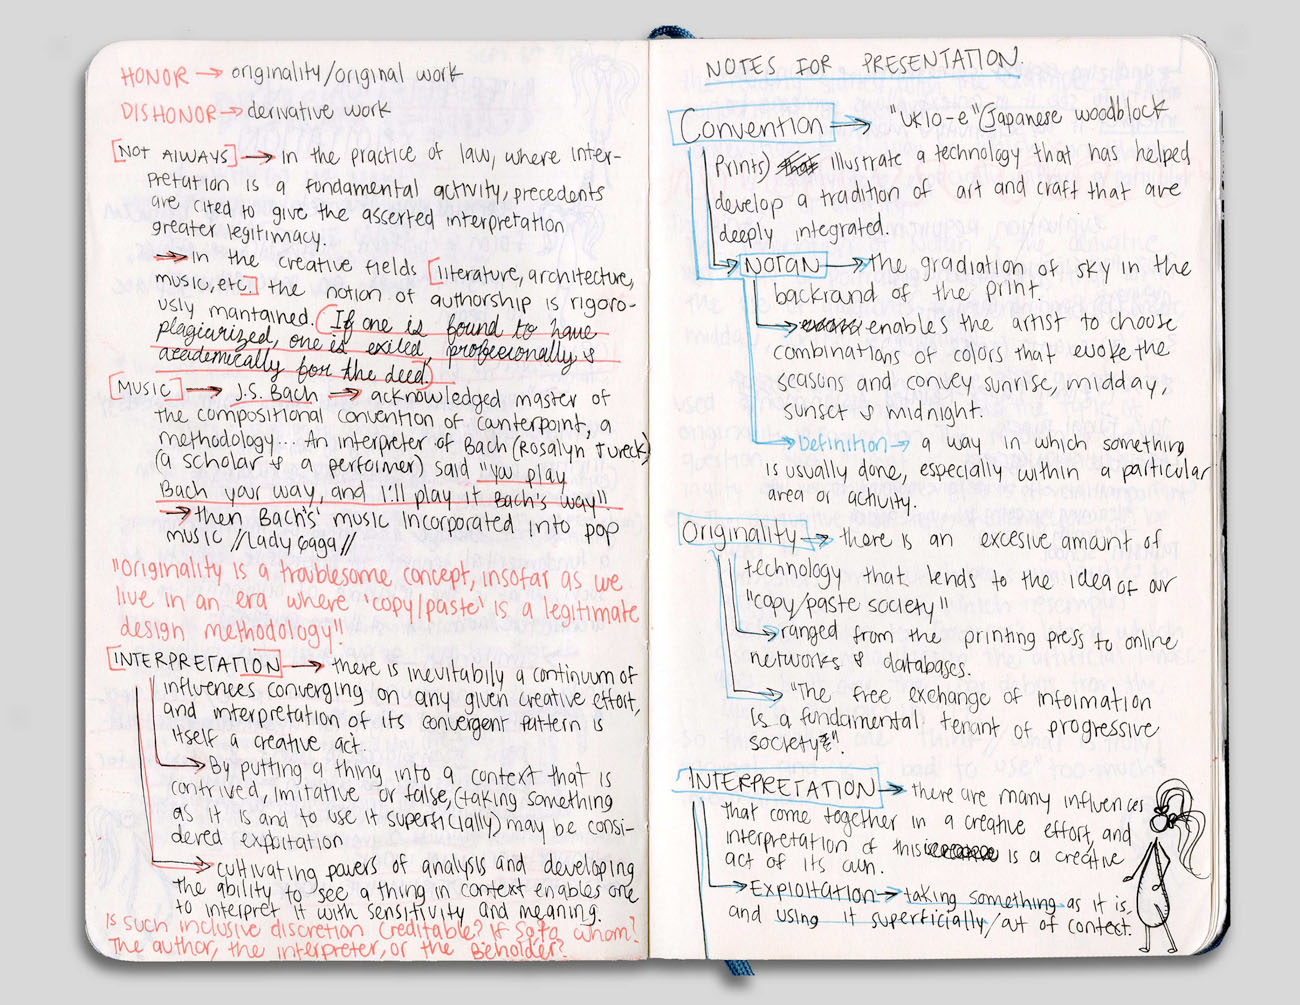 HONOR → originality/original work
DISHONOR → derivative work
[NOT ALWAYS] → in the practice of law, where inter-
pretation is a fundamental activity, precedents
are cited to give the asserted interpretation
greater legitimacy.
→ in the creative fields [literature, architecture,
music, etc.] the notion of authorship is rigoro-
usly mantained. (If one is found to have
plagiarized, one is exiled, profecionally &
academically for the deed.)
[MUSIC] → J.S. Bach → acknowledged master of
the compositional convention of canterpoint, a
methodology... An interpreter of Bach (Rosalyn Tureck)
(a scholar & a performer) said "You play
Bach your way, and I'll play it Bach's way"
→ then Bach's music incorporated into pop
music //Lady Gaga//
"Originality is a troublesome concept, insofar as we
live in an era where 'copy/paste' is a legitimate
design methodology"
[INTERPRETATION] → there is inevitabily a continuum of
influences converging on any given creative effort,
and interpretation of its convergent pattern is
itself a creative act.
→ By putting a thing into a context that is
contrived, imitative or false, (taking something
as it is and to use it superficially) may be consi-
dered exploitation
→ cultivating powers of analysis and developing
the ability to see a thing in context enables one
to interpret it with sensitivity and meaning.
Is such inclusive discretion creditable? If so, to whom?
The author, the interpreter, or the Beholder?
NOTES FOR PRESENTATION.
Convention → "UKIO-e" (Japanese woodblock
Prints) illustrate a technology that has helped
develop a tradition of art and craft that are
deeply integrated.
→ NOTAN → the gradiation of sky in the
backrand of the print
→ enables the artist to choose
combinations of colors that evoke the
seasons and convey sunrise, midday,
sunset & midnight.
→ Definition → a way in which something
is usually done, especially within a particular
area or activity.
Originality → there is an excesive amount of
technology that lends to the idea of our
"copy/paste society"
→ ranged from the printing press to online
networks & databases.
→ "The free exchange of information
is a fundamental tenant of progressive
society".
INTERPRETATION → there are many influences
that come together in a creative effort, and
interpretation of this is a creative
act of its own.
→ Exploitation → taking something as it is,
and using it superficially/out of context.